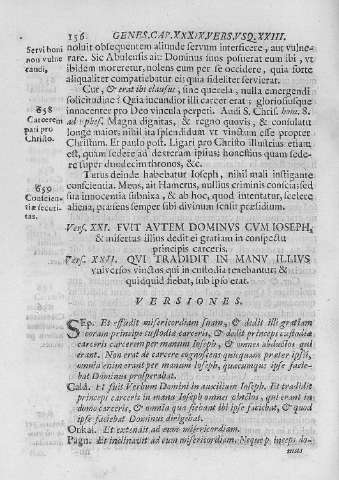 156 GENES. CAP. XXXIX. VERS. VSQ. XXIII.
Servi boni
non vulne
randi,
noluit obsequentem aliunde servum interficere, aut vulne-
rare. Sic Abulensis ait: Dominus suus posuerat eum ibi, vt
ibidem moreretur, nolens eum per se occidere, quia forte
aliqualiter compatiebatur ei; quia fideliter servierat.
Cur, & erat ibi clausus, sine querela, nulla emergendi
sollicitudine? Quia iucundior illi carcer erat; gloriosiusque
658
Carcerem
pati pro
Christo.
innocenter pro Deo vincula perpeti. Audi S. Chris. hom. 8.
ad ephes. Magna dignitas, & regno quovis, & consulatu
longe maior; nihil ita splendidum vt vinctum esse propter
Christum. Et paulo post. Ligari pro Christo illustrius etiam
est, quàm sedere ad dexteram ipsius; honestius quam sede-
re super duodecim thronos, &c.
659
Conscien-
tiæ securi-
tas.
Tutus deinde habebatur Ioseph, nihil mali instigante
conscientia. Mens, ait Hamerus, nullius criminis conscia; sed
sua innocentia subnixa, & ab hoc, quod intentatur, scelere
aliena, præsens semper sibi divinum sensit præsidium.
Vers. XXI. FVIT AVTEM DOMINVS CVM IOSEPH,
& misertus illius dedit ei gratiam in conspectu
principis carceris.
Vers. XXII. QVI TRADIDIT IN MANV ILLIVS
vniversos vinctos qui in custodia tenebantur: &
quidquid fiebat, sub ipso erat.
VERSIONES.
SEp. Et effudit misericordiam suam, & dedit illi gratiam
coram principe custodiæ carceris, & dedit princeps custodiæ
carceris carcerem per manum Ioseph, & omnes abductos qui
erant. Non erat de carcere cognoscens quicquam præter ipsum,
omnia enim erant per manum Ioseph, quæcumque ipse facie-
bat Dominus prosperabat.
Cald. Et fuit Verbum Domini in auxilium Ioseph. Et tradidit
princeps carceris in manu Ioseph omnes vinctos, qui erant in
domo carceris, & omnia quæ fiebant ibi ipse faciebat, & quod
ipse faciebat Dominus dirigebat.
Onkai. Et extendit ad eum misericordiam.
Pagn. Et inclinavit ad eum misericordiam. Neque princeps do-
mus